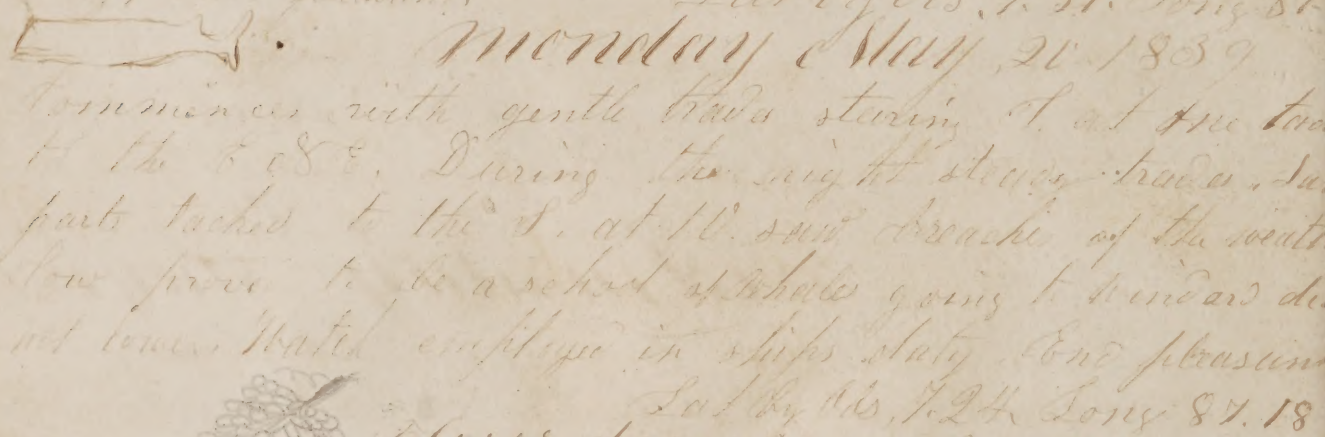 Monday May 20 1839
Commences with gentle trades stearing S. at one tac
to the E S E. During the night steady trades. La
parts tacked to the S. at 10. saw breaches of the weath
bow prove to be a school of whales going to windard di
not lower. Watch employed in ships duty End pleasan
Lat by Obs. 7.24 Long 87.18